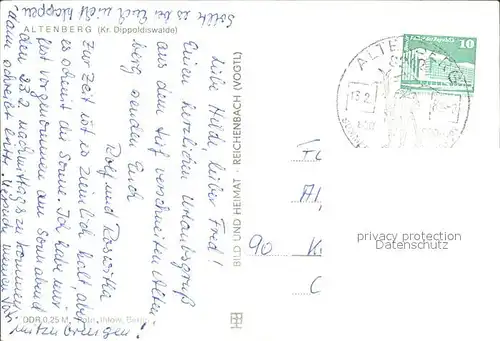 ALTENBERG (Kr. Dippoldiswalde)
Liebe Hilde, lieber Fred!
Einen herzlichen Urlaubsgruß
aus dem tief verschneiten Alten-
berg senden Euch
Rolf und Roswitha
Zur Zeit ist es ziemlich kalt, aber
es scheint die Sonne. Ich habe mir
fest vorgenommen am Sonnabend
den 23.2. nachmittags zu kommen.
Sollte es bei Euch nicht klappen
dann schreibt bitte.
mitzubringen!
BILD UND HEIMAT · REICHENBACH (VOGTL)
DDR 0,25 M
ALTENBERG
10
90
privacy protection
Datenschutz